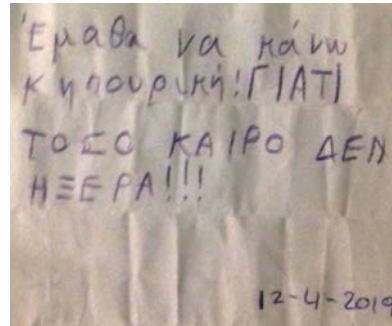 Έμαθα να κάνω
κηπουρική! ΓΙΑΤΙ
ΤΟΣΟ ΚΑΙΡΟ ΔΕΝ
ΗΞΕΡΑ!!!
12-4-2019